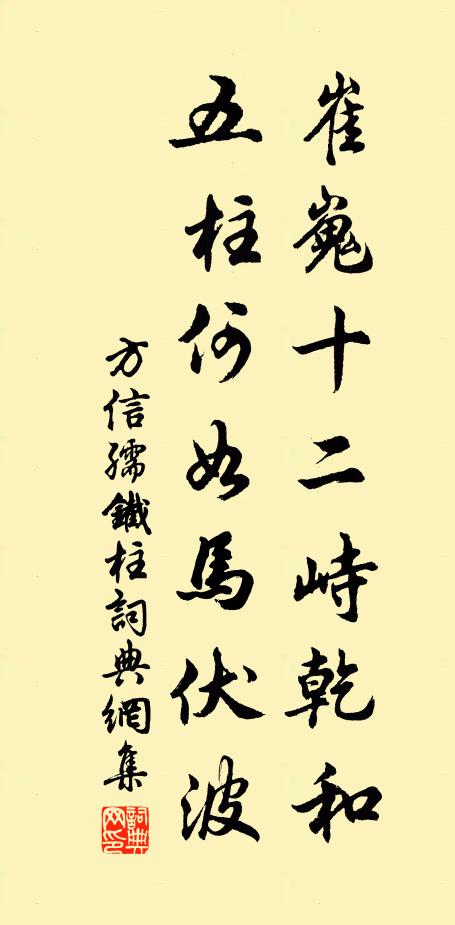 崔嵬十二峙乾和
五柱何如馬伏波
方信孺鐵柱詞典網集
詞典網印